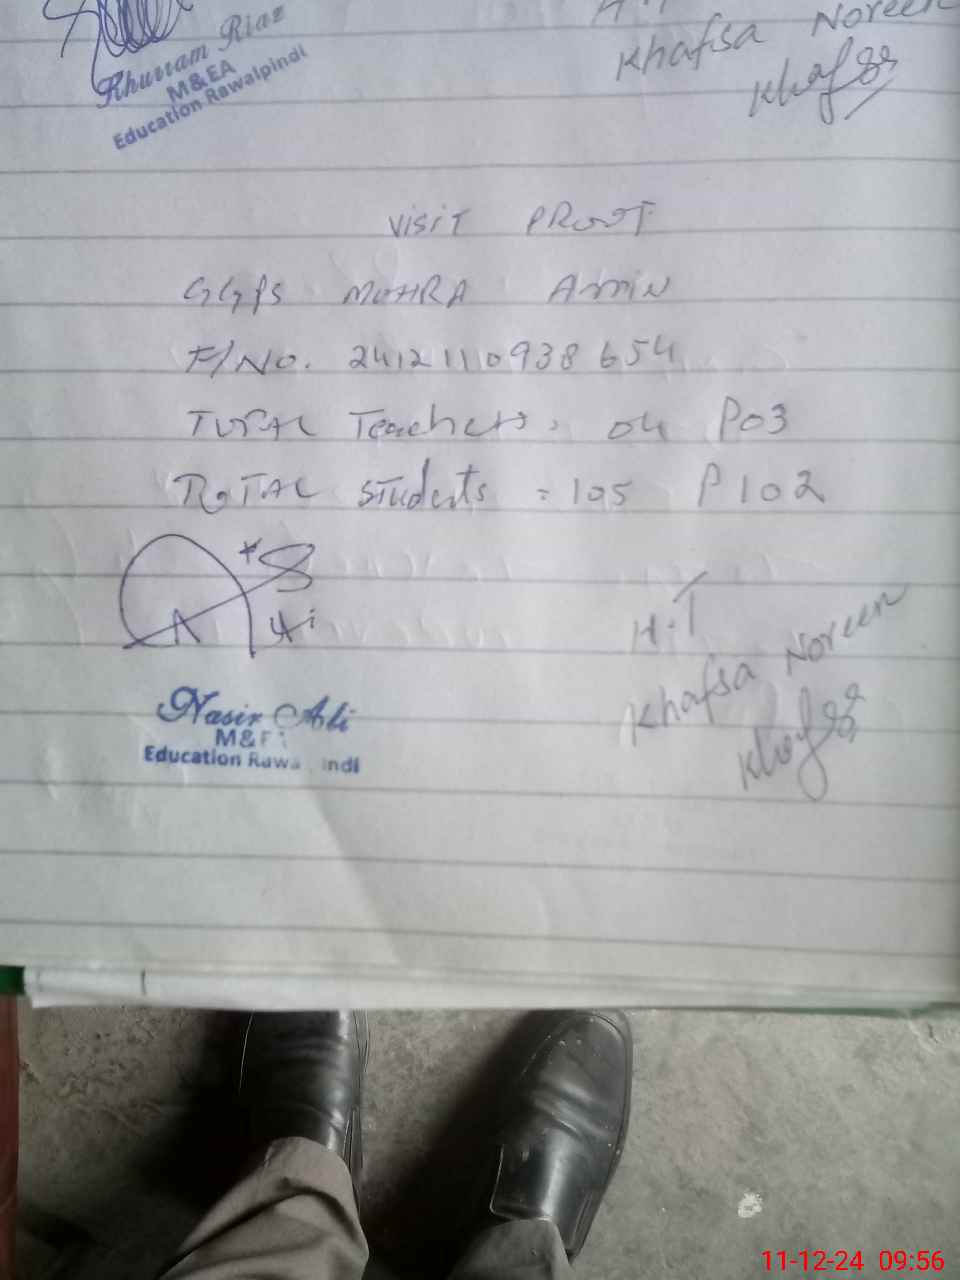 Khurram Riaz
M&EA
Education Rawalpindi
Khafsa Noreen
VISIT PROOF
GGPS MOHRA AMIN
F/NO. 2412110938654
TOTAL Teachers = 04 P03
TOTAL Students = 105 P102
H.T
Khafsa Noreen
Nasir Ali
M&E
Education Rawa indi
11-12-24 09:56